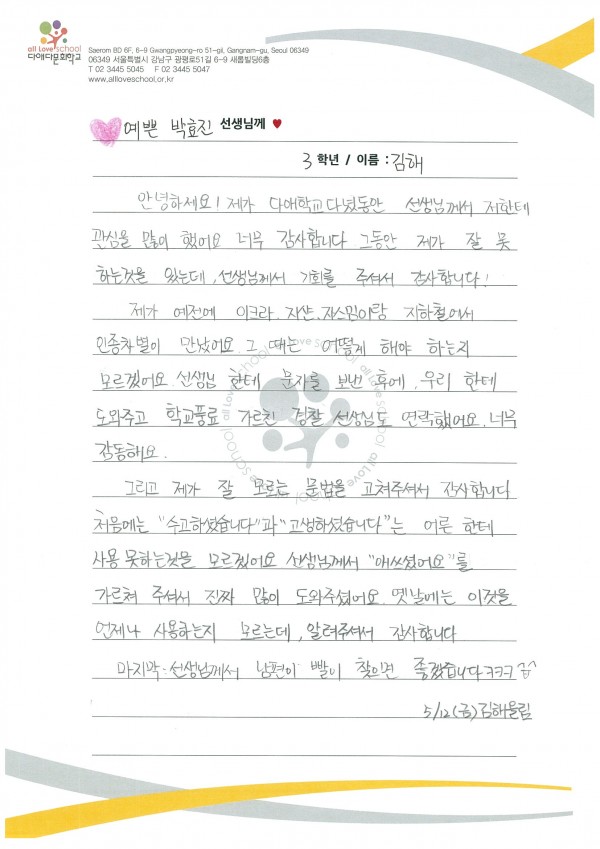 all Love school
다애다문화학교
Saerom BD 6F, 6-9 Gwangpyeong-ro 51-gil, Gangnam-gu, Seoul 06349
06349 서울특별시 강남구 광평로51길 6-9 새롬빌딩6층
T 02 3445 5045 F 02 3445 5047
www.allloveschool.or.kr
예쁜 박효진 선생님께 ♥
3 학년 / 이름 : 김해
안녕하세요! 제가 다애학교다녔동안 선생님께서 저한테
관심을 많이 했어요 너무 감사합니다 그동안 제가 잘 못
하는것을 있는데, 선생님께서 기회를 주셔서 감사합니다!
제가 예전에 이크라. 지샨. 자스민이랑 지하철에서
인종차별이 만났어요. 그 때는 어떻게 해야 하는지
모르겠어요. 선생님 한테 문자를 보낸 후에, 우리 한테
도와주고 학교풍료 가르친 경찰 선생님도 연락했어요. 너무
감동해요.
그리고 제가 잘 모르는 문법을 고쳐주셔서 감사합니다
처음에는 "수고하셨습니다"과 "고생하셨습니다"는 어른 한테
사용 못하는것을 모르겠어요 선생님께서 "애쓰셨어요"를
가르쳐 주셔서 진짜 많이 도와주셨어요. 옛날에는 이것을
언제나 사용하는지 모르는데, 알려주셔서 감사합니다
마지막 : 선생님께서 남편이 빨이 찾으면 좋겠습니다ㅋㅋㅋ
5/12(금)김해율림
all Love school